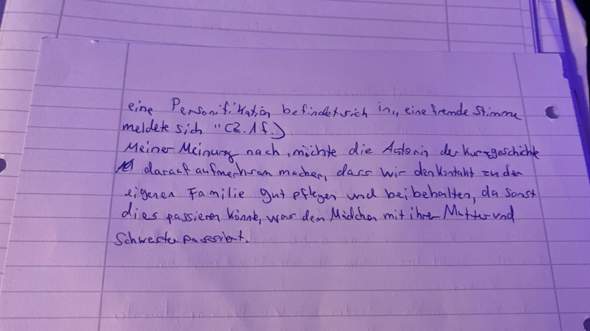 eine Personifikation befindet sich in „eine fremde Stimme
meldete sich" (Z. 1f.)
Meiner Meinung nach, möchte die Autorin der Kurzgeschichte
darauf aufmerksam machen, dass wir den Kontakt zu der
eigenen Familie gut pflegen und beibehalten, da sonst
dies passieren könnte, was dem Mädchen mit ihrer Mutter und
Schwester passiert.